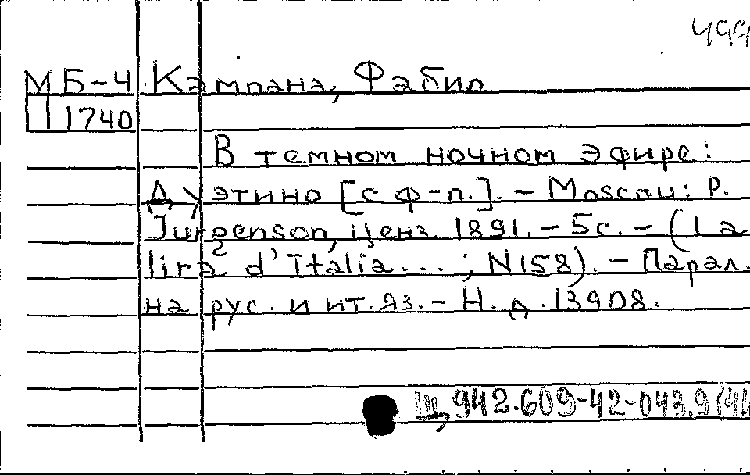 499
МБ-4 Кампана, Фабио
1740
В темном ночном эфире:
Дуэтино [с ф-п.]. - Moscou: P.
Jurgenson, ценз. 1891. - 5с. - (La
lira d'Italia...; N158). - Парал.
на рус. и ит. яз. - Н. д. 13908.
Щ 942.609-42-043.9(4И